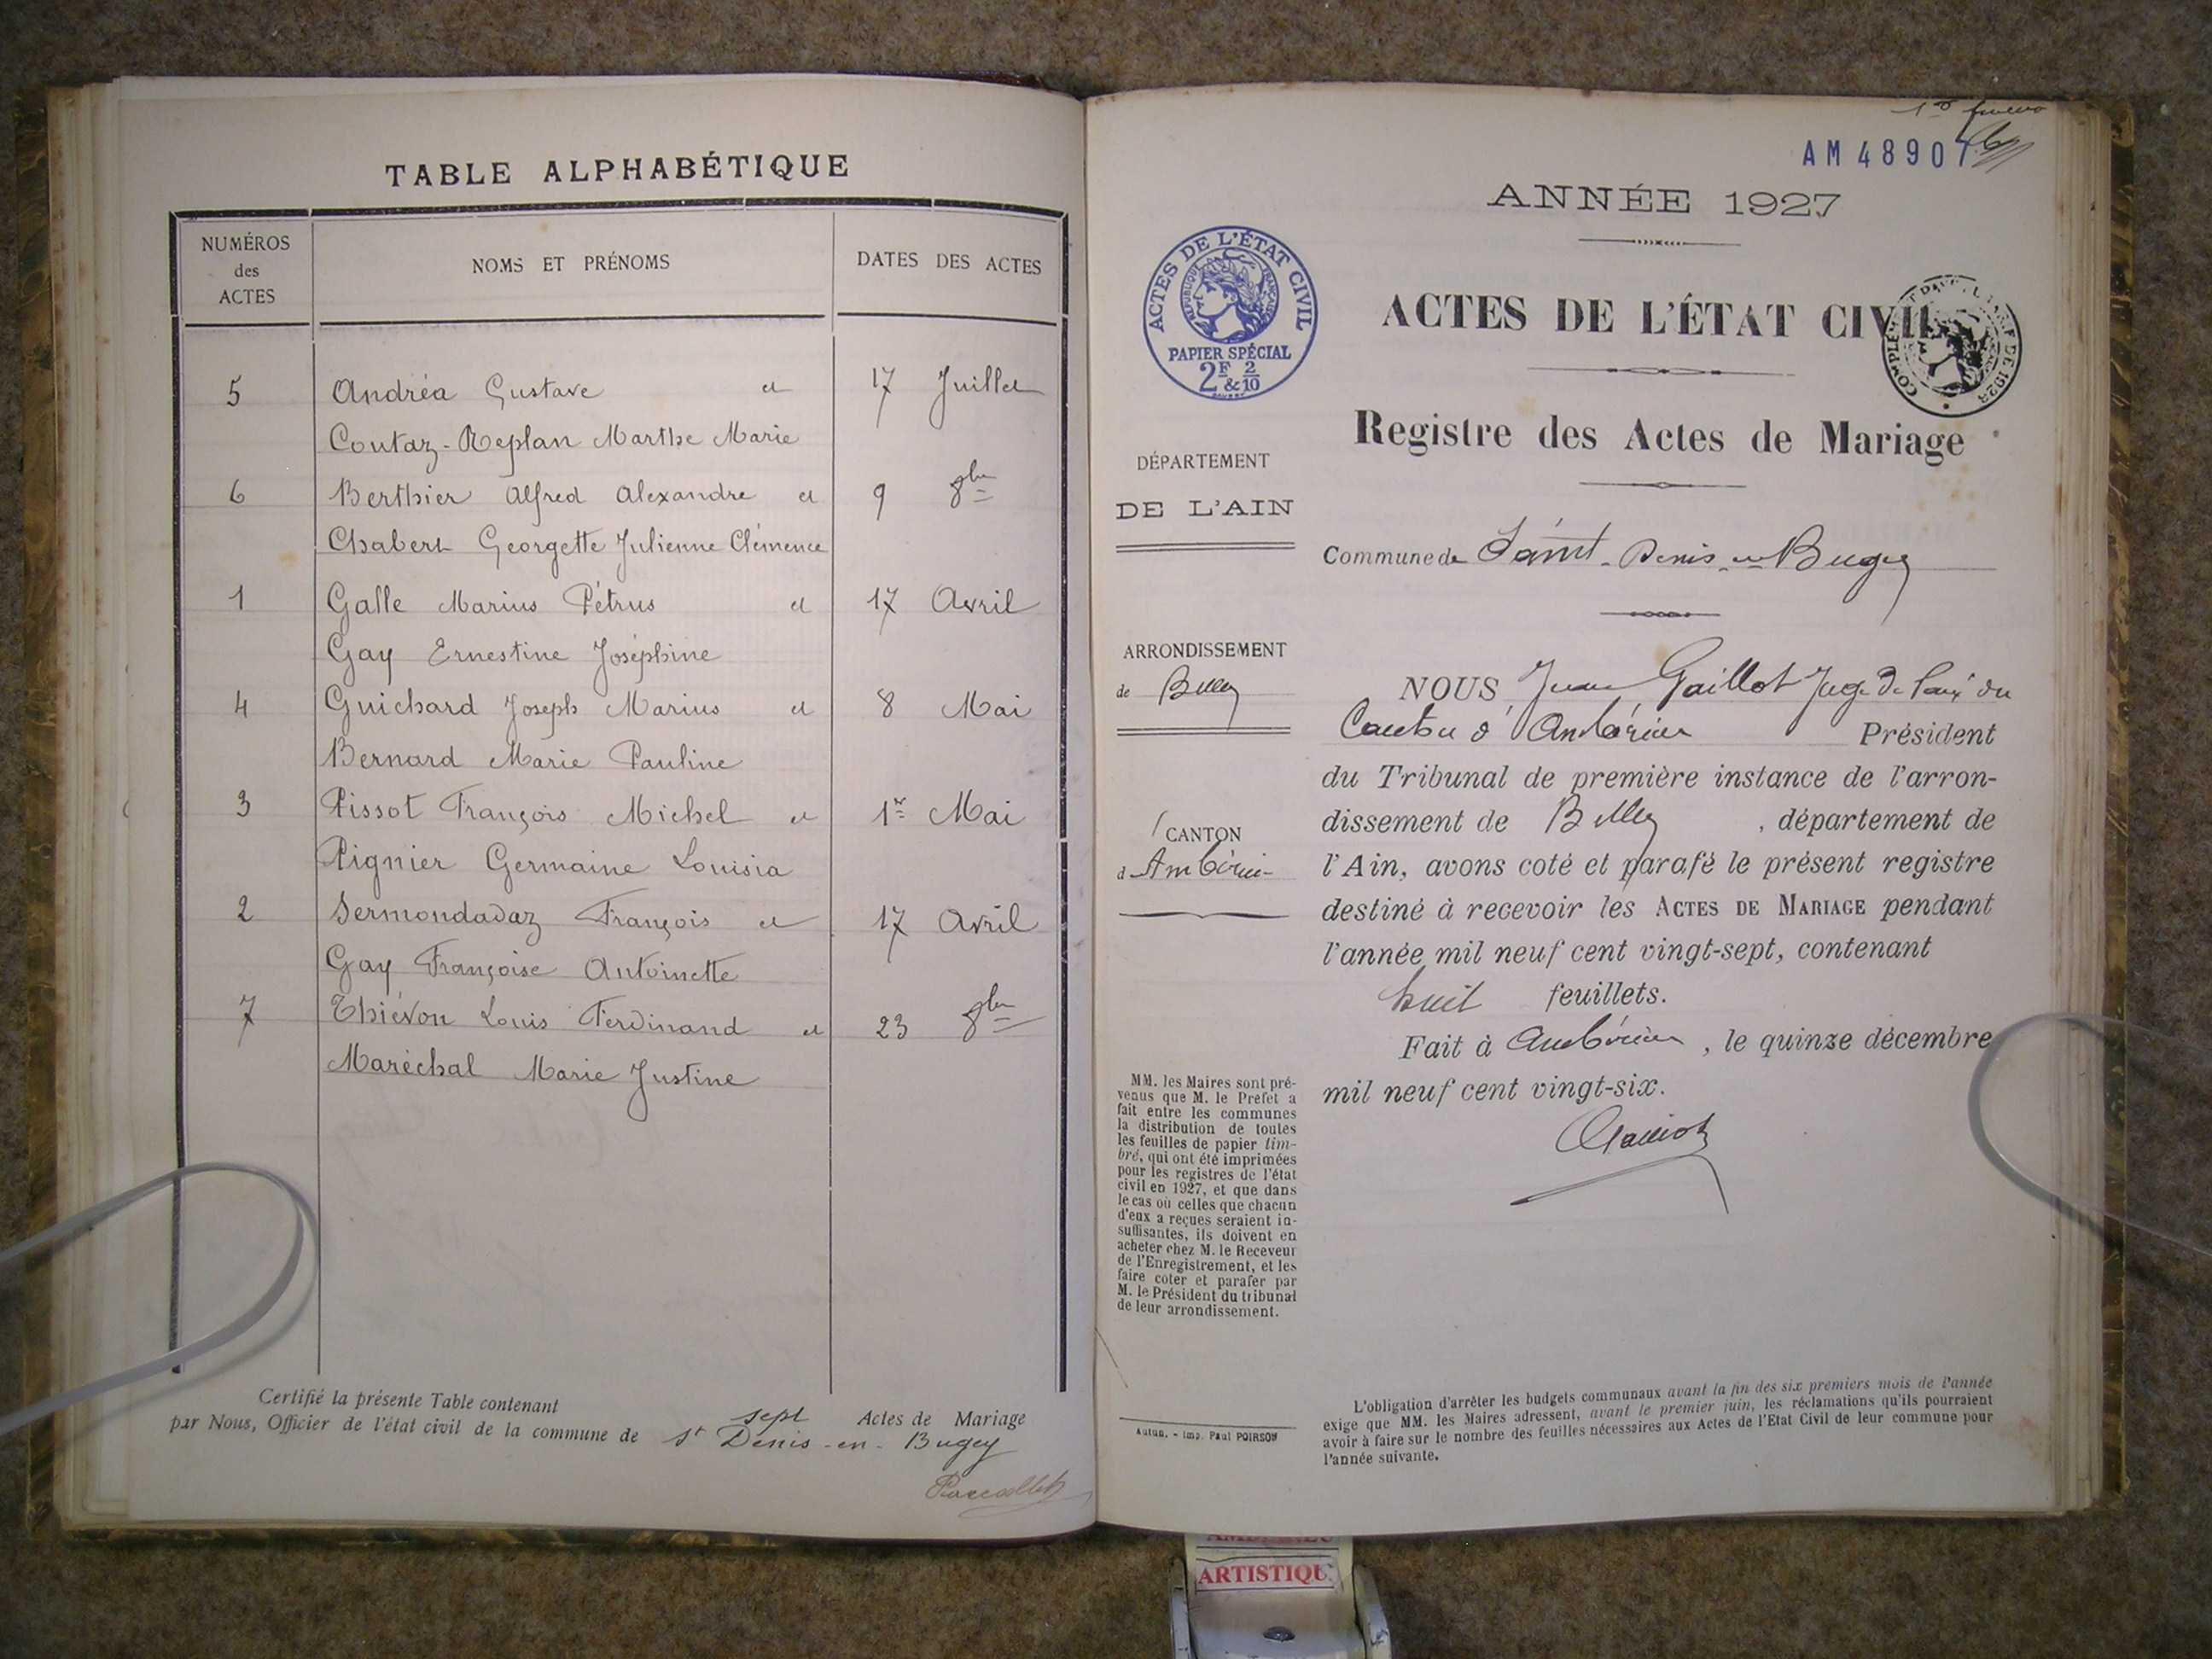 TABLE ALPHABÉTIQUE
NUMÉROS des ACTES
NOMS ET PRÉNOMS
DATES DES ACTES
5 Andréa Gustave et 17 Juillet
Coutaz-Replan Marthe Marie
6 Berthier Alfred Alexandre et 9 8bre
Chabert Georgette Julienne Clémence
1 Galle Marius Pétrus et 17 Avril
Gay Ernestine Joséphine
4 Guichard Joseph Marius et 8 Mai
Bernard Marie Pauline
3 Pissot François Michel et 1er Mai
Pignier Germaine Louisia
2 Sermondadaz François et 17 Avril
Gay Françoise Antoinette
7 Thiévon Louis Ferdinand et 23 8bre
Maréchal Marie Justine
Certifié la présente Table contenant sept Actes de Mariage
par Nous, Officier de l'état civil de la commune de St Denis-en-Bugey
AM 48907
ANNÉE 1927
ACTES DE L'ÉTAT CIVIL
RÉPUBLIQUE FRANÇAISE
PAPIER SPÉCIAL
2F & 2/10
ACTES DE L'ÉTAT CIVIL
Registre des Actes de Mariage
DÉPARTEMENT
DE L'AIN
Commune de Saint-Denis-en-Bugey
ARRONDISSEMENT
de Belley
CANTON
d'Ambérieu
NOUS, Jean Gaillot Juge de Paix du
Canton d'Ambérieu Président
du Tribunal de première instance de l'arron-
dissement de Belley, département de
l'Ain, avons coté et parafé le présent registre
destiné à recevoir les ACTES DE MARIAGE pendant
l'année mil neuf cent vingt-sept, contenant
huit feuillets.
Fait à Ambérieu, le quinze décembre
mil neuf cent vingt-six.
MM. les Maires sont pré-
venus que M. le Préfet a
fait entre les communes
la distribution de toutes
les feuilles de papier tim-
bré, qui ont été imprimées
pour les registres de l'état
civil en 1927, et que dans
le cas où celles que chacun
d'eux a reçues seraient in-
suffisantes, ils doivent en
acheter chez M. le Receveur
de l'Enregistrement, et les
faire coter et parafer par
M. le Président du tribunal
de leur arrondissement.
Autun. - Imp. Paul POIRSON
L'obligation d'arrêter les budgets communaux avant la fin des six premiers mois de l'année
exige que MM. les Maires adressent, avant le premier juin, les réclamations qu'ils pourraient
avoir à faire sur le nombre des feuilles nécessaires aux Actes de l'Etat Civil de leur commune pour
l'année suivante.
ARTISTIQU